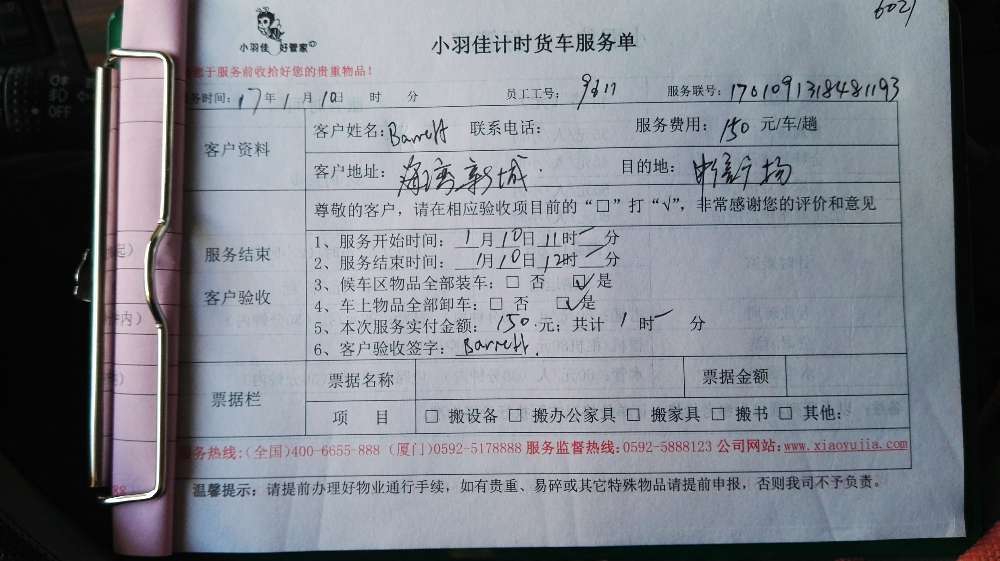 6021
小羽佳 好管家
小羽佳计时货车服务单
于服务前收拾好您的贵重物品！
务时间：17年1月10日 时 分 员工工号：9311 服务联号：1701091318481193
客户资料
客户姓名：Barrett 联系电话： 服务费用：150 元/车/趟
客户地址：海湾新城 目的地：
尊敬的客户，请在相应验收项目前的“□”打“√”，非常感谢您的评价和意见
服务结束
客户验收
1、服务开始时间：1月10日11时 分
2、服务结束时间：1月10日12时 分
3、候车区物品全部装车：□ 否 ☑是
4、车上物品全部卸车：□ 否 ☑是
5、本次服务实付金额：150元；共计 1 时 分
6、客户验收签字：Barrett.
票据栏
票据名称 票据金额
项 目 □ 搬设备 □ 搬办公家具 □ 搬家具 □ 搬书 □ 其他:
务热线:(全国)400-6655-888 (厦门)0592-5178888 服务监督热线:0592-5888123 公司网站:www.xiaoyujia.com
温馨提示：请提前办理好物业通行手续，如有贵重、易碎或其它特殊物品请提前申报，否则我司不予负责。
OFF